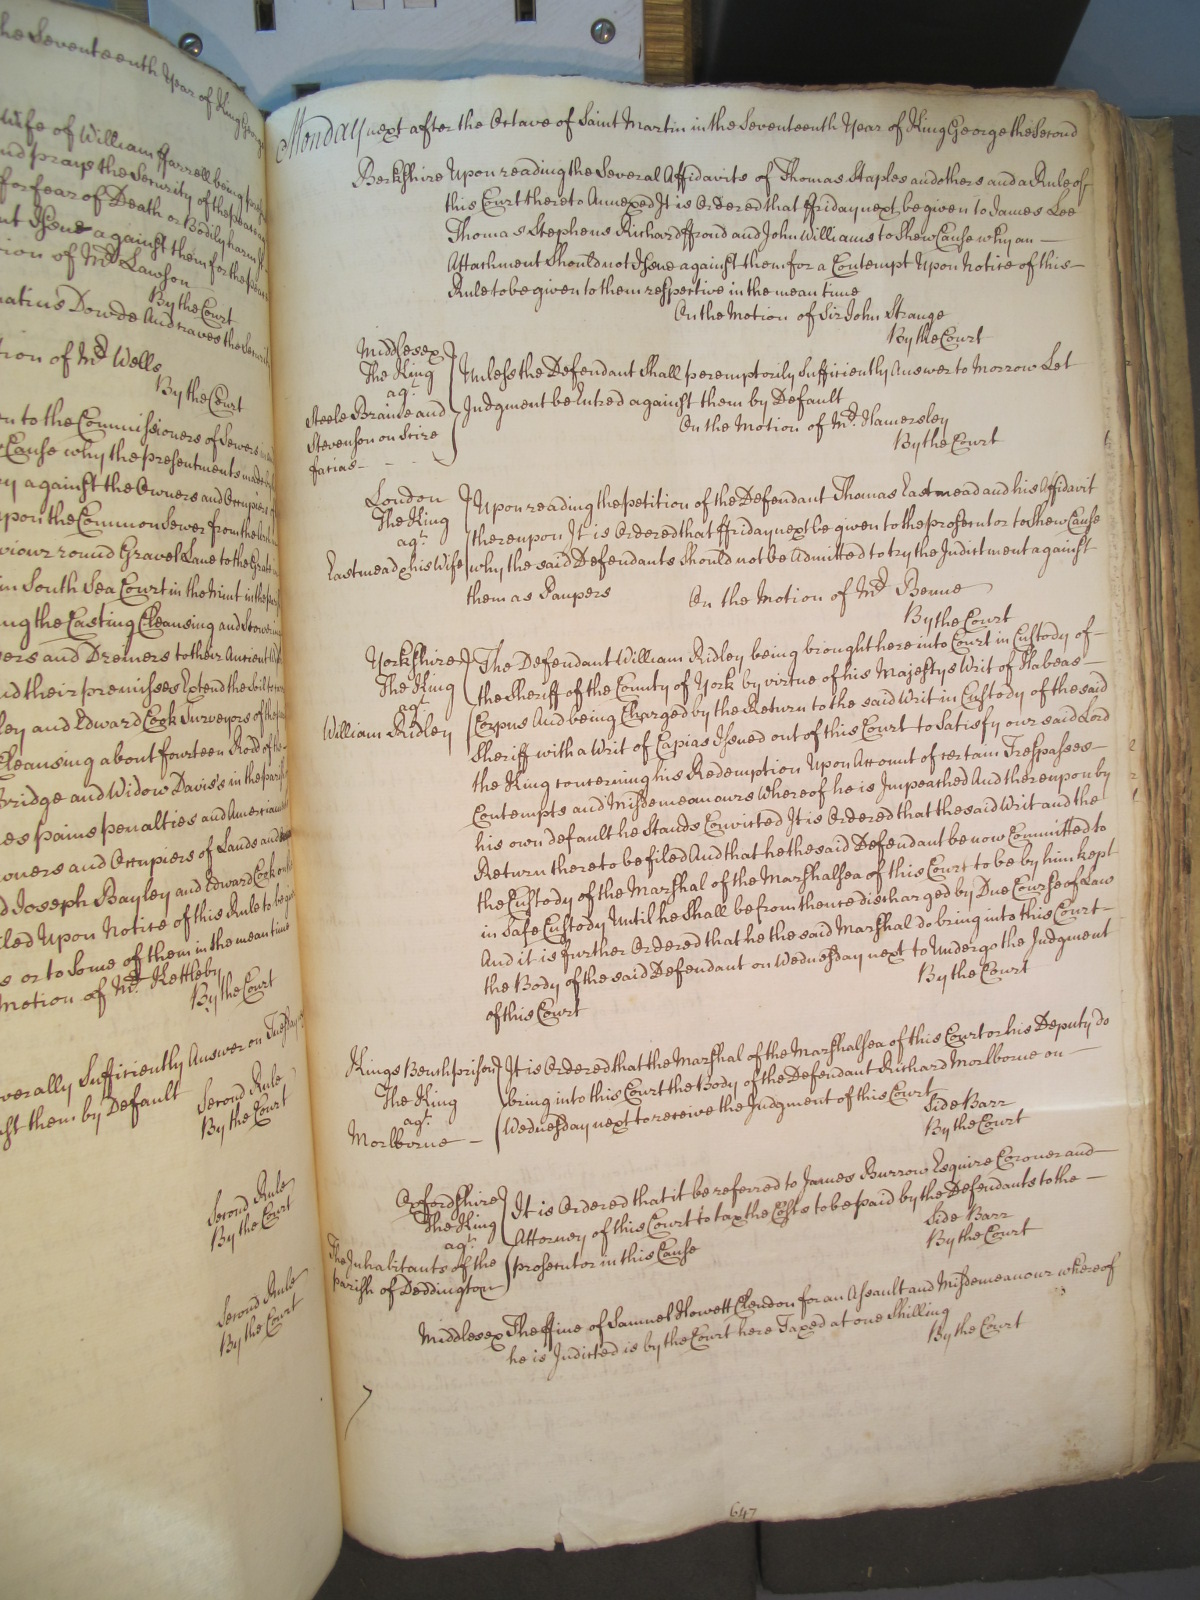 the Seventeenth Year of King George
Wife of William ffarrell being
and prays the Security of the peace
for fear of Death or Bodily harm
nt Issue against them for the peace
tion of Mr. Lawson
By the Court
natius Dowde And craves the
tion of Mr. Wells
By the Court
on to the Commissioners of Sewers
Cause why the presentments made
ey against the Owners and Occupiers of
upon the Common Sewer from the
round Gravel Lane to the
in South Sea Court in the Mint in the
ing the Casting Cleansing and
ers and Dreiners to their Ancient
nd their premisses Extend the
ley and Edward Cook Surveyors of the
Cleansing about fourteen Rodd of the
Bridge and Widow Davis's in the parish
es pains penalties and
wners and Occupiers of Lands and
d Joseph Bayley and Edward Cook
led Upon Notice of this Rule to be
s or to Some of them in the mean time
Motion of Mr. Kettleby
By the Court
verally Sufficiently Answer on Tuesday
st them by Default
Second Rule
By the Court
Second Rule
By the Court
Second Rule
By the Court
Monday next after the Octave of Saint Martin in the Seventeenth Year of King George the Second
Berkshire Upon reading the Several Affidavits of Thomas Staples and others and a Rule of
this Court thereto Annexed It is Ordered that ffriday next be given to James Lee
Thomas Stephens Richard ffroud and John Williams to Shew Cause why an
Attachment Should not Issue against them for a Contempt Upon Notice of this
Rule to be given to them respective in the mean time
On the Motion of Sir John Strange
By the Court
Middlesex
The King
agt.
Steele Braine and
Stevenson on Scire
facias
Unless the Defendant Shall peremptorily Sufficiently Answer to Morrow Let
Judgment be Entred against them by Default
On the Motion of Mr. Hamersley
By the Court
London
The King
agt.
Eastmead & his Wife
Upon reading the petition of the Defendant Thomas Eastmead and his Affidavit
thereupon It is Ordered that ffriday next be given to the prosecutor to Shew Cause
why the said Defendants Should not be admitted to try the Indictment against
them as Paupers On the Motion of Mr. Benne
By the Court
Yorkshire
The King
agt.
William Ridley
The Defendant William Ridley being brought here into Court in Custody of
the Sheriff of the County of York by virtue of his Majestys Writ of Habeas
Corpus And being Charged by the Return to the said Writ in Custody of the said
Sheriff with a Writ of Capias Issued out of this Court to Satisfy our said Lord
the King concerning his Redemption Upon Account of certain Trespasses
Contempts and Misdemeanours Whereof he is Impeached And thereupon by
his own default he Stands Convicted It is Ordered that the said Writ and the
Return thereto be filed And that he the said Defendant be now Committed to
the Custody of the Marshal of the Marshalsea of this Court to be by him kept
in Safe Custody Until he Shall be from thence discharged by Due Course of Law
And it is further Ordered that he the said Marshal do bring into this Court
the Body of the said Defendant on Wednesday next to Undergo the Judgment
of this Court
By the Court
Kings Bench prison
The King
agt.
Morlborne
It is Ordered that the Marshal of the Marshalsea of this Court or his Deputy do
bring into this Court the Body of the Defendant Richard Morlborne on
Wednesday next to receive the Judgment of this Court
Side Barr
By the Court
Oxfordshire
The King
agt.
The Inhabitants of the
parish of Deddington
It is Ordered that it be referred to James Burrow Esquire Coroner and
Attorney of this Court to tax the Costs to be paid by the Defendants to the
prosecutor in this Cause
Side Barr
By the Court
Middlesex The ffine of Samuel Howett Clendon for an Assault and Misdemeanour whereof
he is Indicted is by the Court here Taxed at one Shilling
By the Court
647